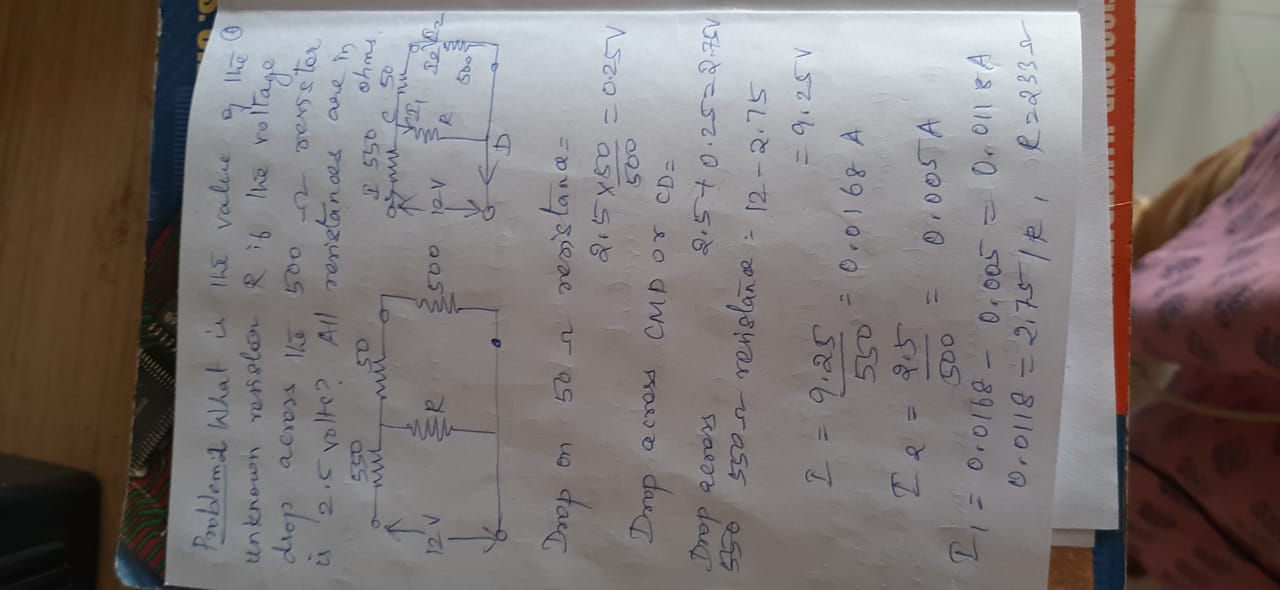 Problem: What is the value of the ①
unknown resistor R if the voltage
drop across the 500 Ω resistor
is 2.5 volts? All resistances are in
ohms.
550 50
12V R 500
I 550 C 50
I1 I2
12V R 500
D
Drop on 50 Ω resistance =
2.5 × 50 / 500 = 0.25V
Drop across CMD or CD =
2.5 + 0.25 = 2.75V
Drop across
550 550 Ω resistance = 12 - 2.75
= 9.25V
I = 9.25 / 550 = 0.0168 A
I2 = 2.5 / 500 = 0.005 A
I1 = 0.0168 - 0.005 = 0.0118 A
0.0118 = 2.75/R, R = 233 Ω